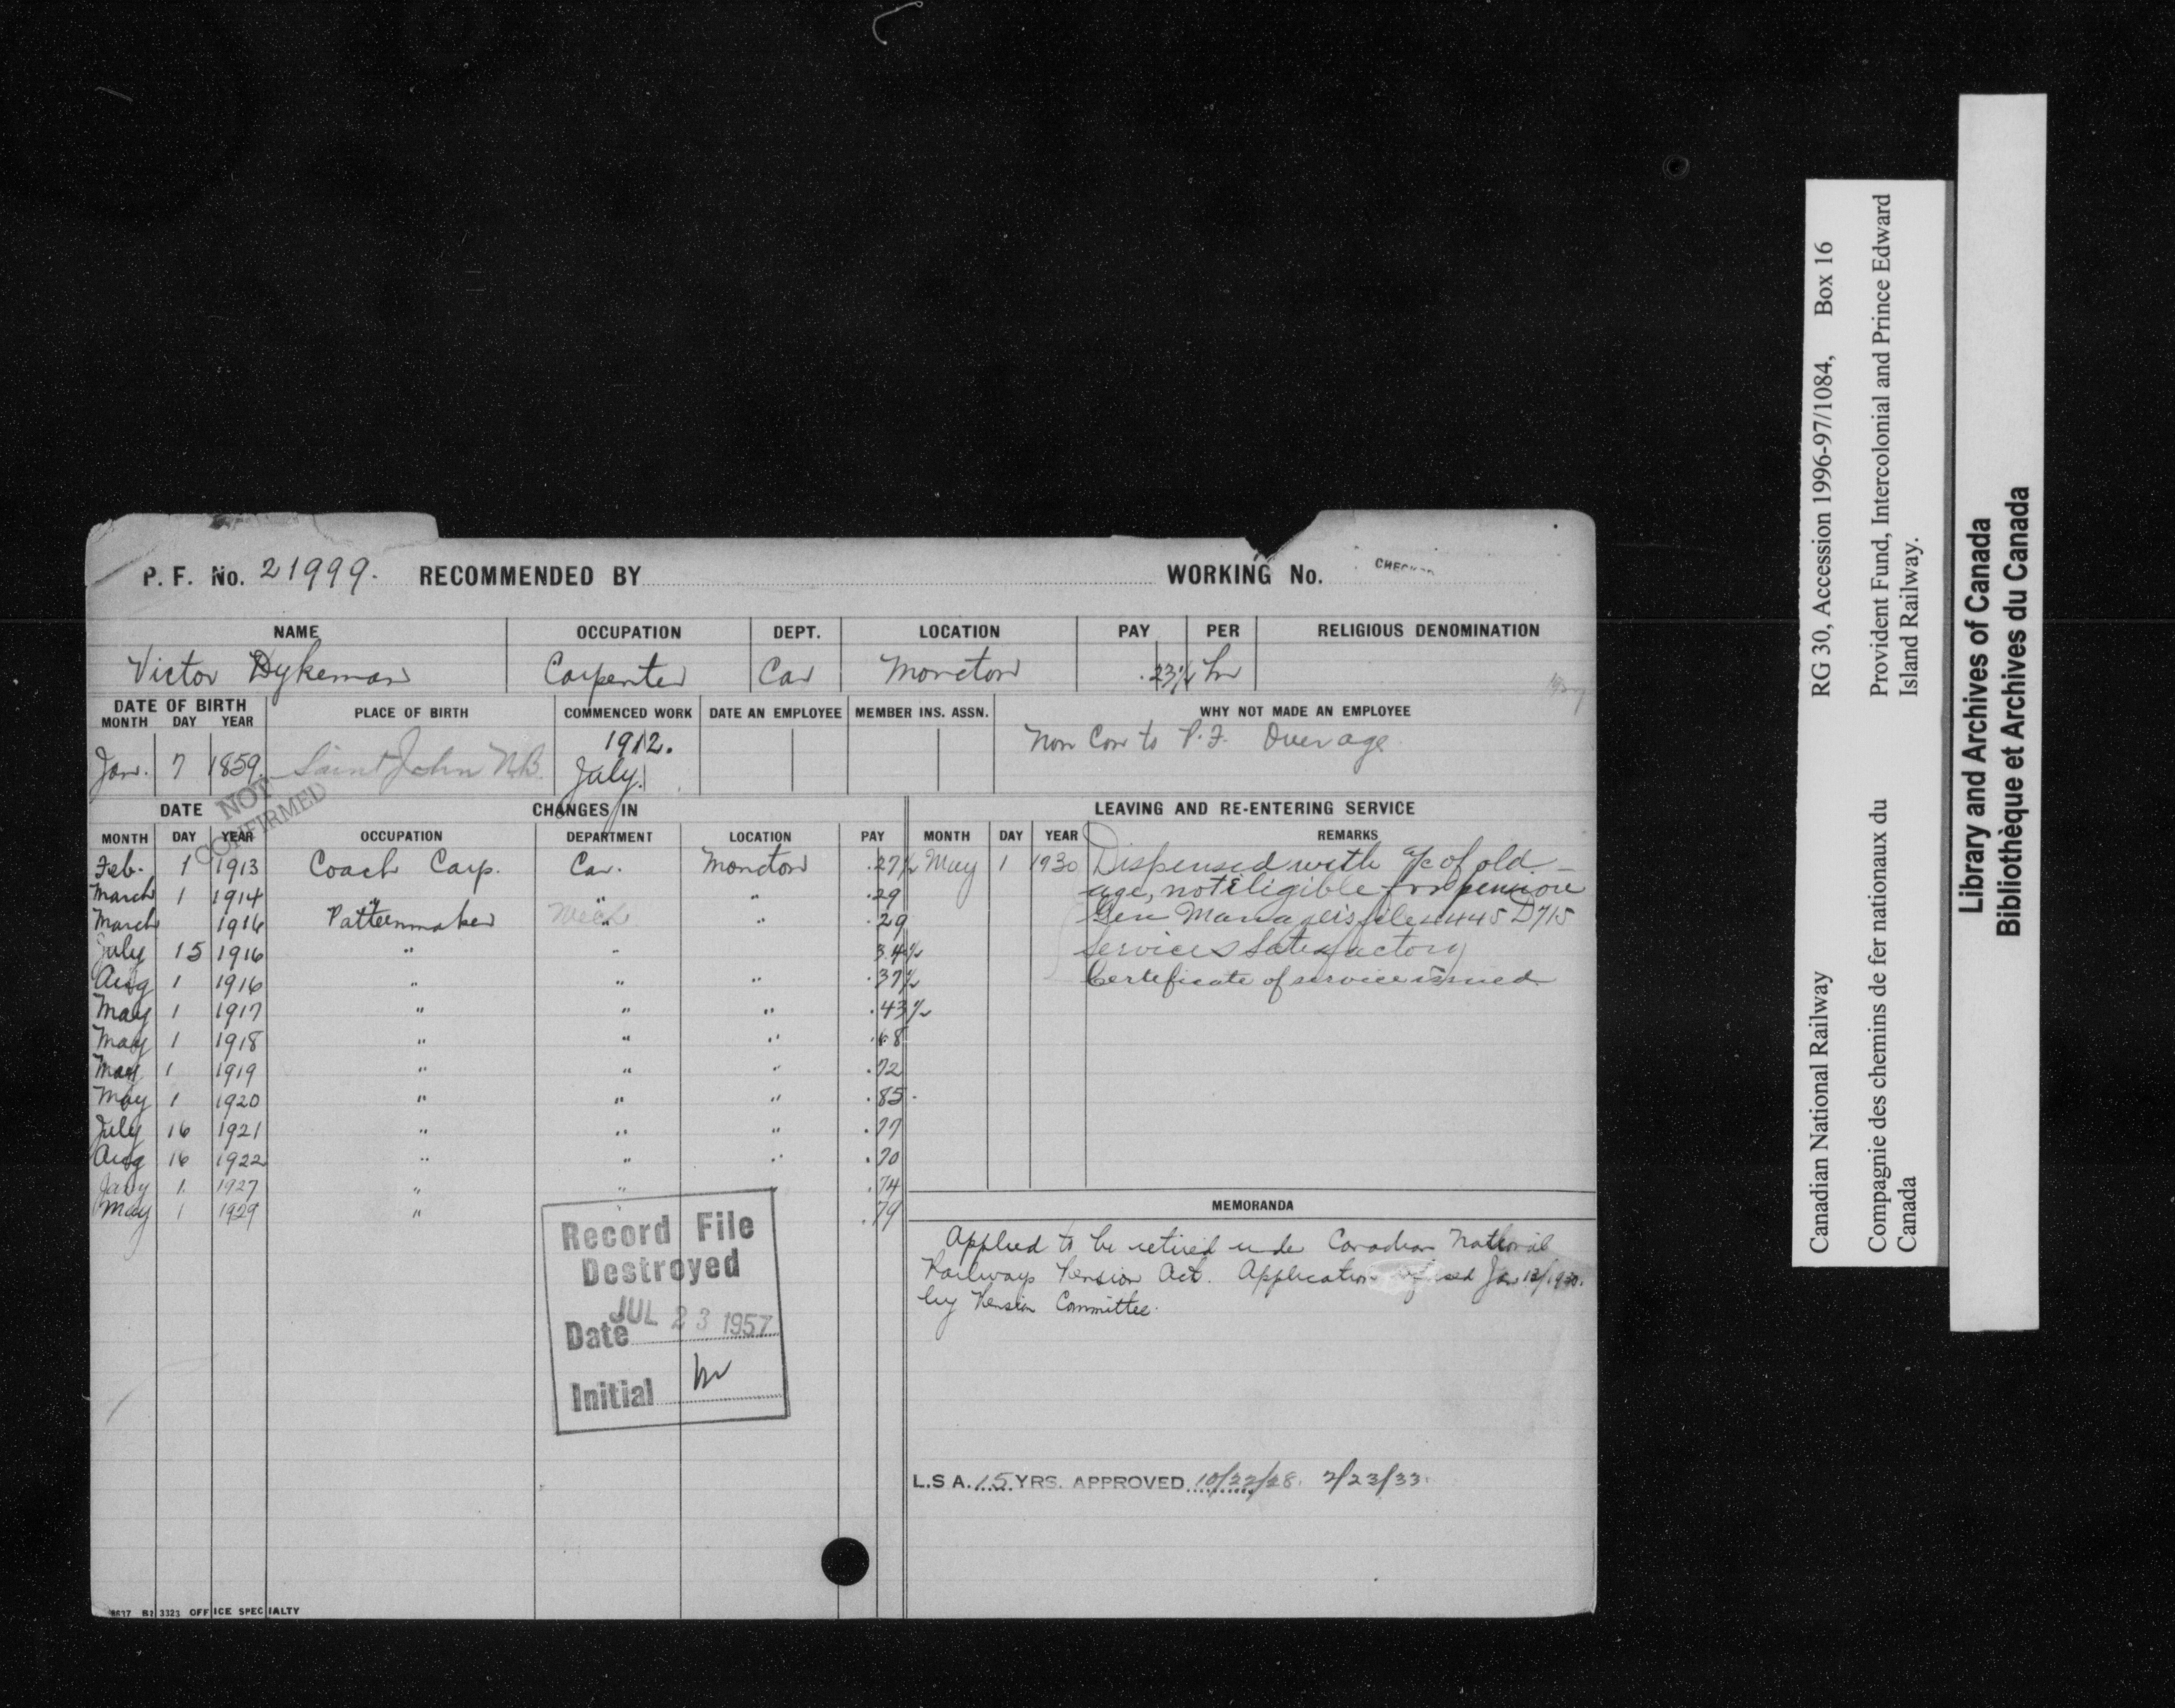 P. F. No. 21999. RECOMMENDED BY WORKING No.
NAME OCCUPATION DEPT. LOCATION PAY PER RELIGIOUS DENOMINATION
Victor Dykeman Carpenter Car Moncton .23½ hr
DATE OF BIRTH
MONTH DAY YEAR PLACE OF BIRTH COMMENCED WORK DATE AN EMPLOYEE MEMBER INS. ASSN. WHY NOT MADE AN EMPLOYEE
1912. Non Con to P.F. Over age.
Jan. 7 1859. Saint John N.B. July.
NOT
CONFIRMED
DATE CHANGES IN
MONTH DAY YEAR OCCUPATION DEPARTMENT LOCATION PAY
Feb. 1 1913 Coach Carp. Car. Moncton .27½
March 1 1914 " " " .29
March 1916 Patternmaker Mech " .29
July 15 1916 " " 34½
Aug 1 1916 " " " .37½
May 1 1917 " " " .43½
May 1 1918 " " " .68
May 1 1919 " " " .72
May 1 1920 " " " .85.
July 16 1921 " " " .77
Aug 16 1922 " " " .70
Jany 1. 1927 " " .74
May 1 1929 " " .79
Record File
Destroyed
Date JUL 23 1957
Initial
LEAVING AND RE-ENTERING SERVICE
MONTH DAY YEAR REMARKS
May 1 1930 Dispensed with a/c of old
age, not eligible for pension
Gen Manager's file 4445 D715
services satisfactory
Certificate of service issued
MEMORANDA
Applied to be retired under Canadian National
Railways Pension Act. Application refused Jan 13/1930.
by Pension Committee.
L.S A. 15 YRS. APPROVED 10/22/28. 2/23/33.
3323 OFFICE SPECIALTY
Canadian National Railway RG 30, Accession 1996-97/1084, Box 16
Compagnie des chemins de fer nationaux du Provident Fund, Intercolonial and Prince Edward
Canada Island Railway.
Library and Archives of Canada
Bibliothèque et Archives du Canada